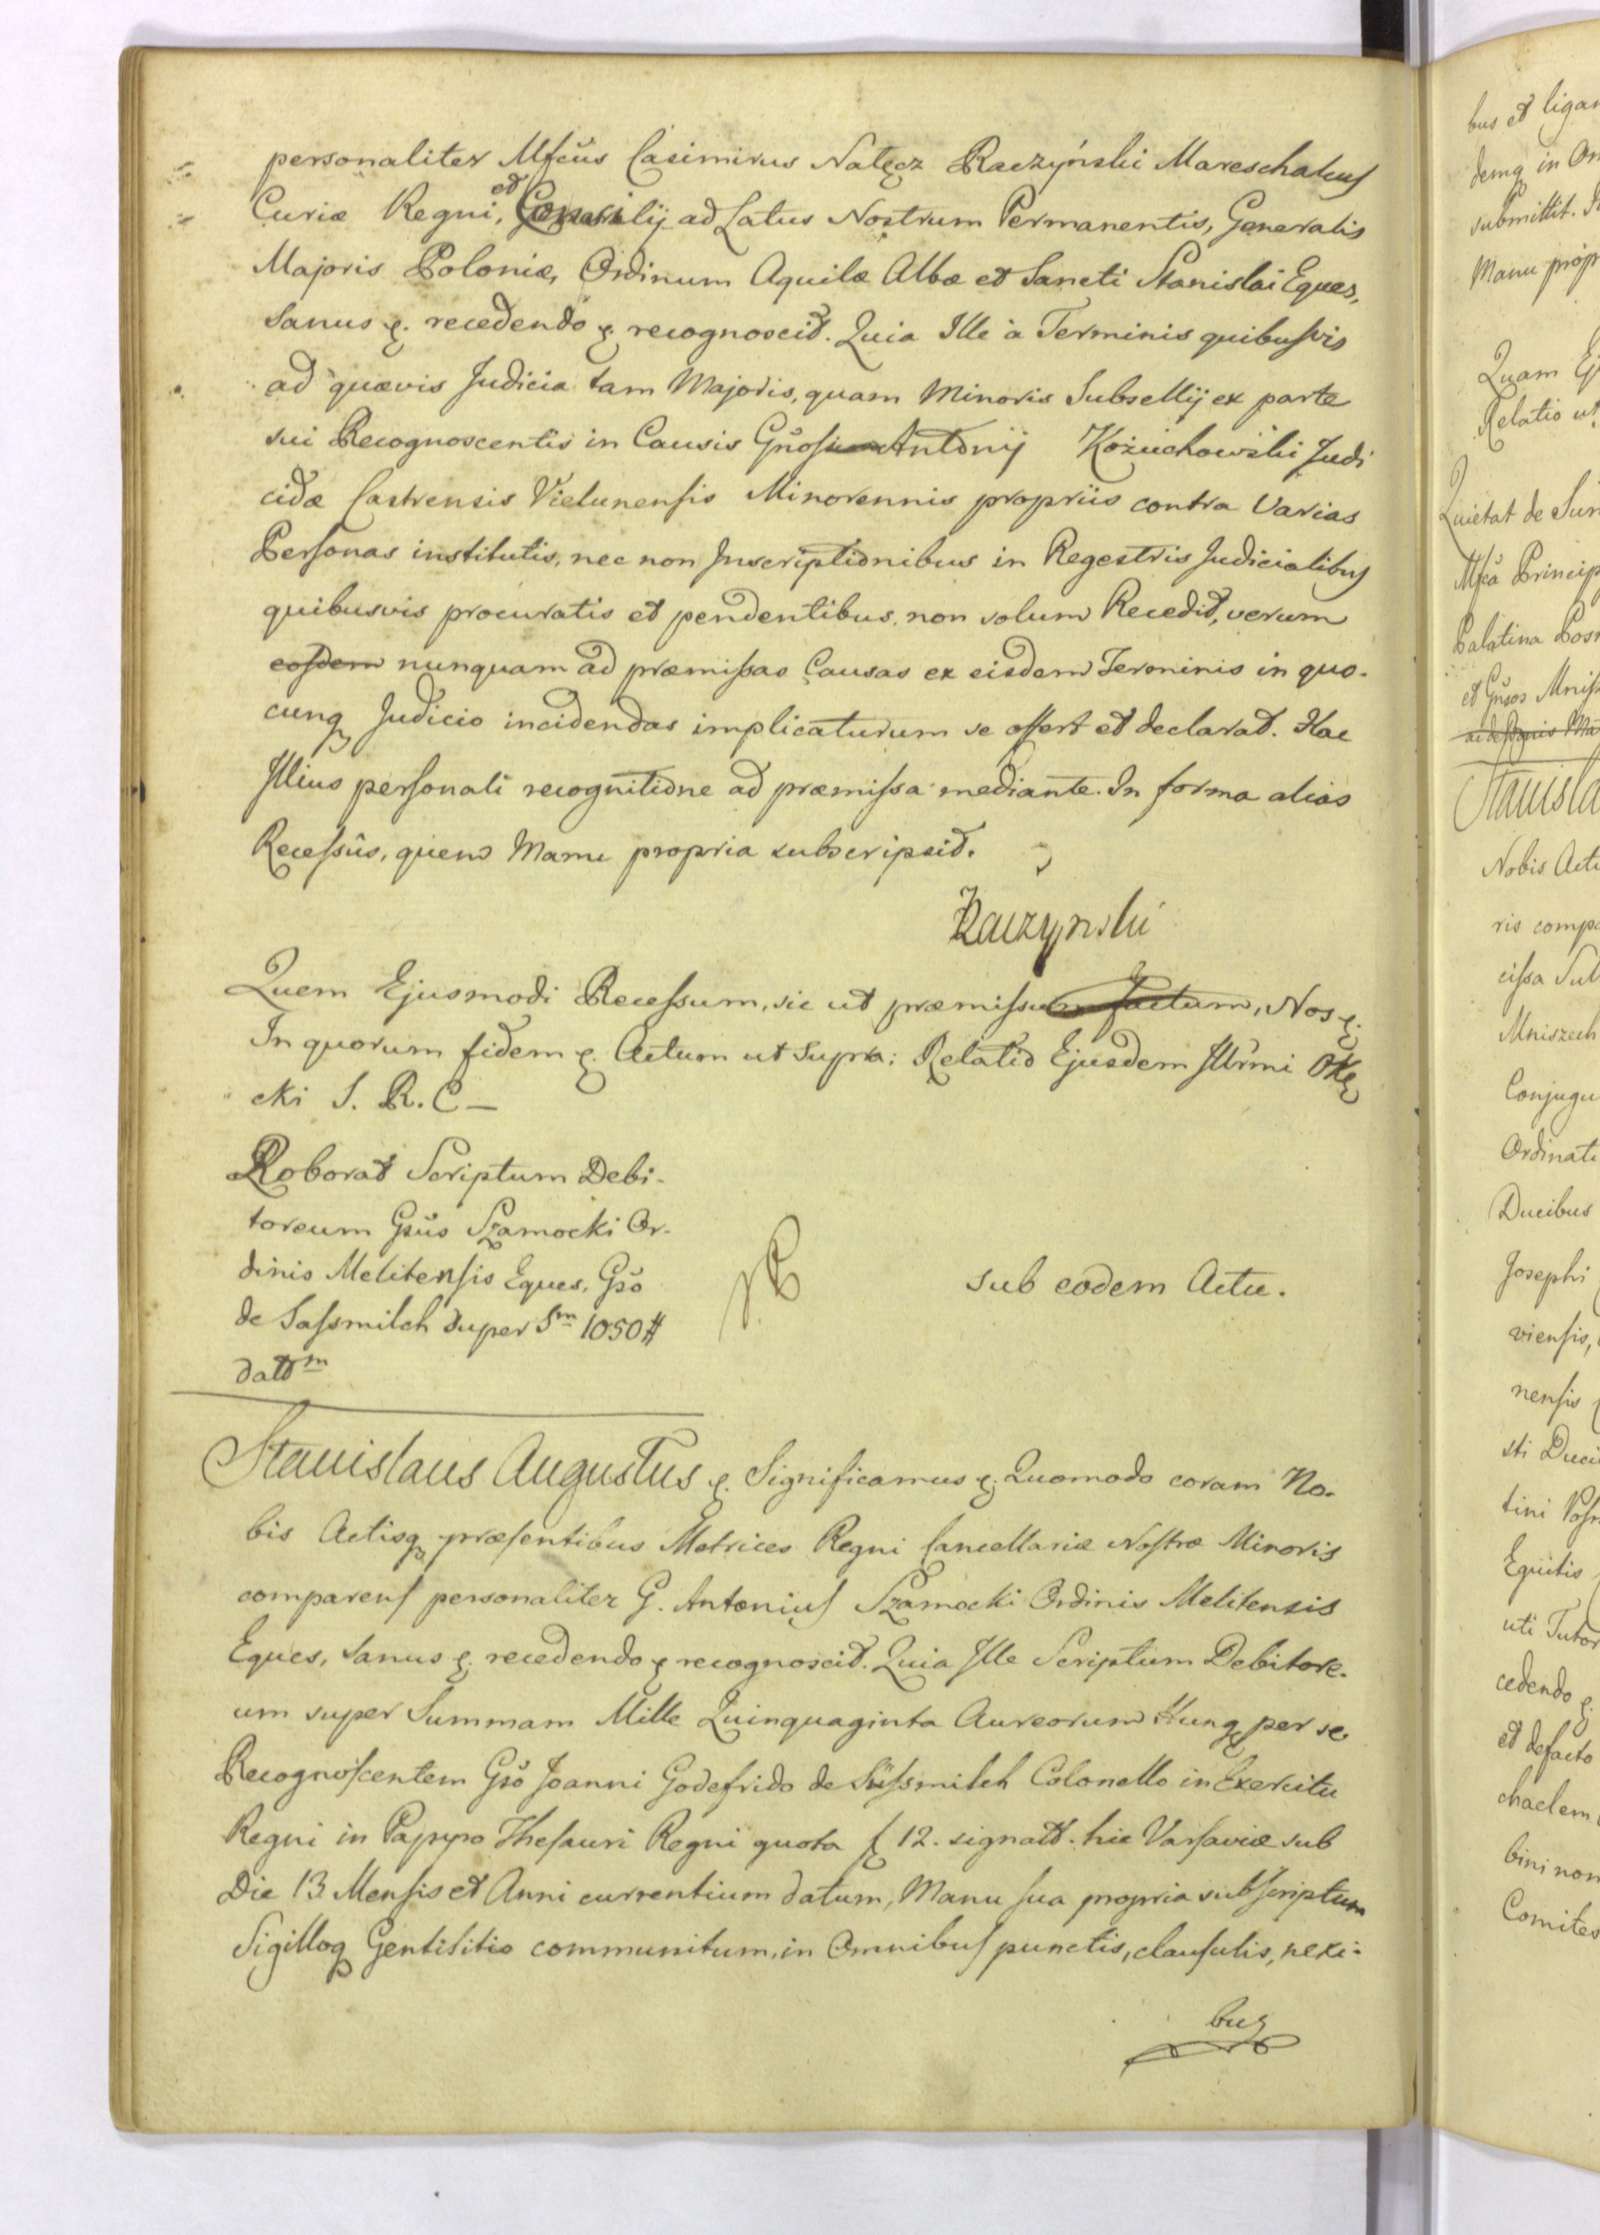 personaliter Mfcūs Casimirus Nałęcz Raczyński Mareschalus
et
Curiæ Regni, Consilij ad Latus Nostrum Permanentis, Generalis
Majoris Poloniæ, Ordinum Aquilæ Albæ et Sancti Stanislai Eques,
Sanus p. recedendo p. recognoscit. Quia Ille à Terminis quibusvis
ad quævis Judicia tam Majoris, quam Minoris Subsellij ex parte
sui Recognoscentis in Causis Gñosi Antonij Kożuchowski Judi
cidæ Castrensis Vielunensis Minorennis propriis contra Varias
Personas institutis, nec non Inscriptionibus in Regestris Judicialibus
quibusvis procuratis et pendentibus, non solum Recedit, verum
eosdem nunquam ad præmissas Causas ex eisdem Terminis in quo-
cunq Judicio incidendas implicaturum se offert et declarat. Hac
Illius personali recognitione ad præmissa mediante. In forma alias
Recessûs, quem Manu propria subscripsit.
Raczyński
Quem Ejusmodi Recessum, sic ut præmissum factum, Nos p.
In quorum fidem p. Actum ut Supra: Relatio Ejusdem Illrmi Okę
cki S. R. C –
Roborat Scriptum Debi-
toreum Gsūs Szamocki Or-
dinis Melitensis Eques, Gsō
de Sassmilch super Sm 1050#
datt m
Sub eodem Actu.
Stanislaus Augustus p. Significamus p. Quomodo coram No-
bis Actisq præsentibus Metrices Regni Cancellariæ Nostræ Minoris
comparens personaliter G. Antonius Szamocki Ordinis Melitensis
Eques, Sanus p. recedendo p recognoscit. Quia Ille Scriptum Debitore-
um super Summam Mille Quinquaginta Aureorum Hung per se
Recognoscentem Gsō Joanni Godefrido de Süssmilch Colonello in Exercitu
Regni in Papyro Thesauri Regni quota f 12. signatt. hic Varsaviæ sub
Die 13 Mensis et Anni currentium datum, Manu sua propria subscriptum
Sigilloq Gentilitio communitum, in Omnibus punctis, clausulis, nexi-
bus
bus et ligam
demq in Om
submittit.
Manu propr
Quam Ej
Relatio ut
Quietat de Sum
Mfcā Princip
Palatina Pos
et Gñsos Mnis
Stanisla
Nobis Acti
ris compa
cissa Sal
Mniszech
Conjugu
Ordinati
Ducibus
Josephi
viensis,
nensis
sti Duci
tini Pos
Equitis
uti Tutor
cedendo p.
et defacto
chaelem
bini non
Comites